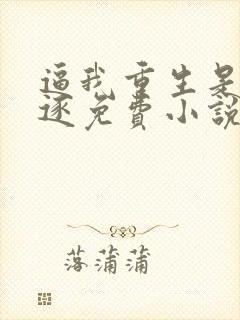 逼我重生是
逐免费小説
落蒲蒲